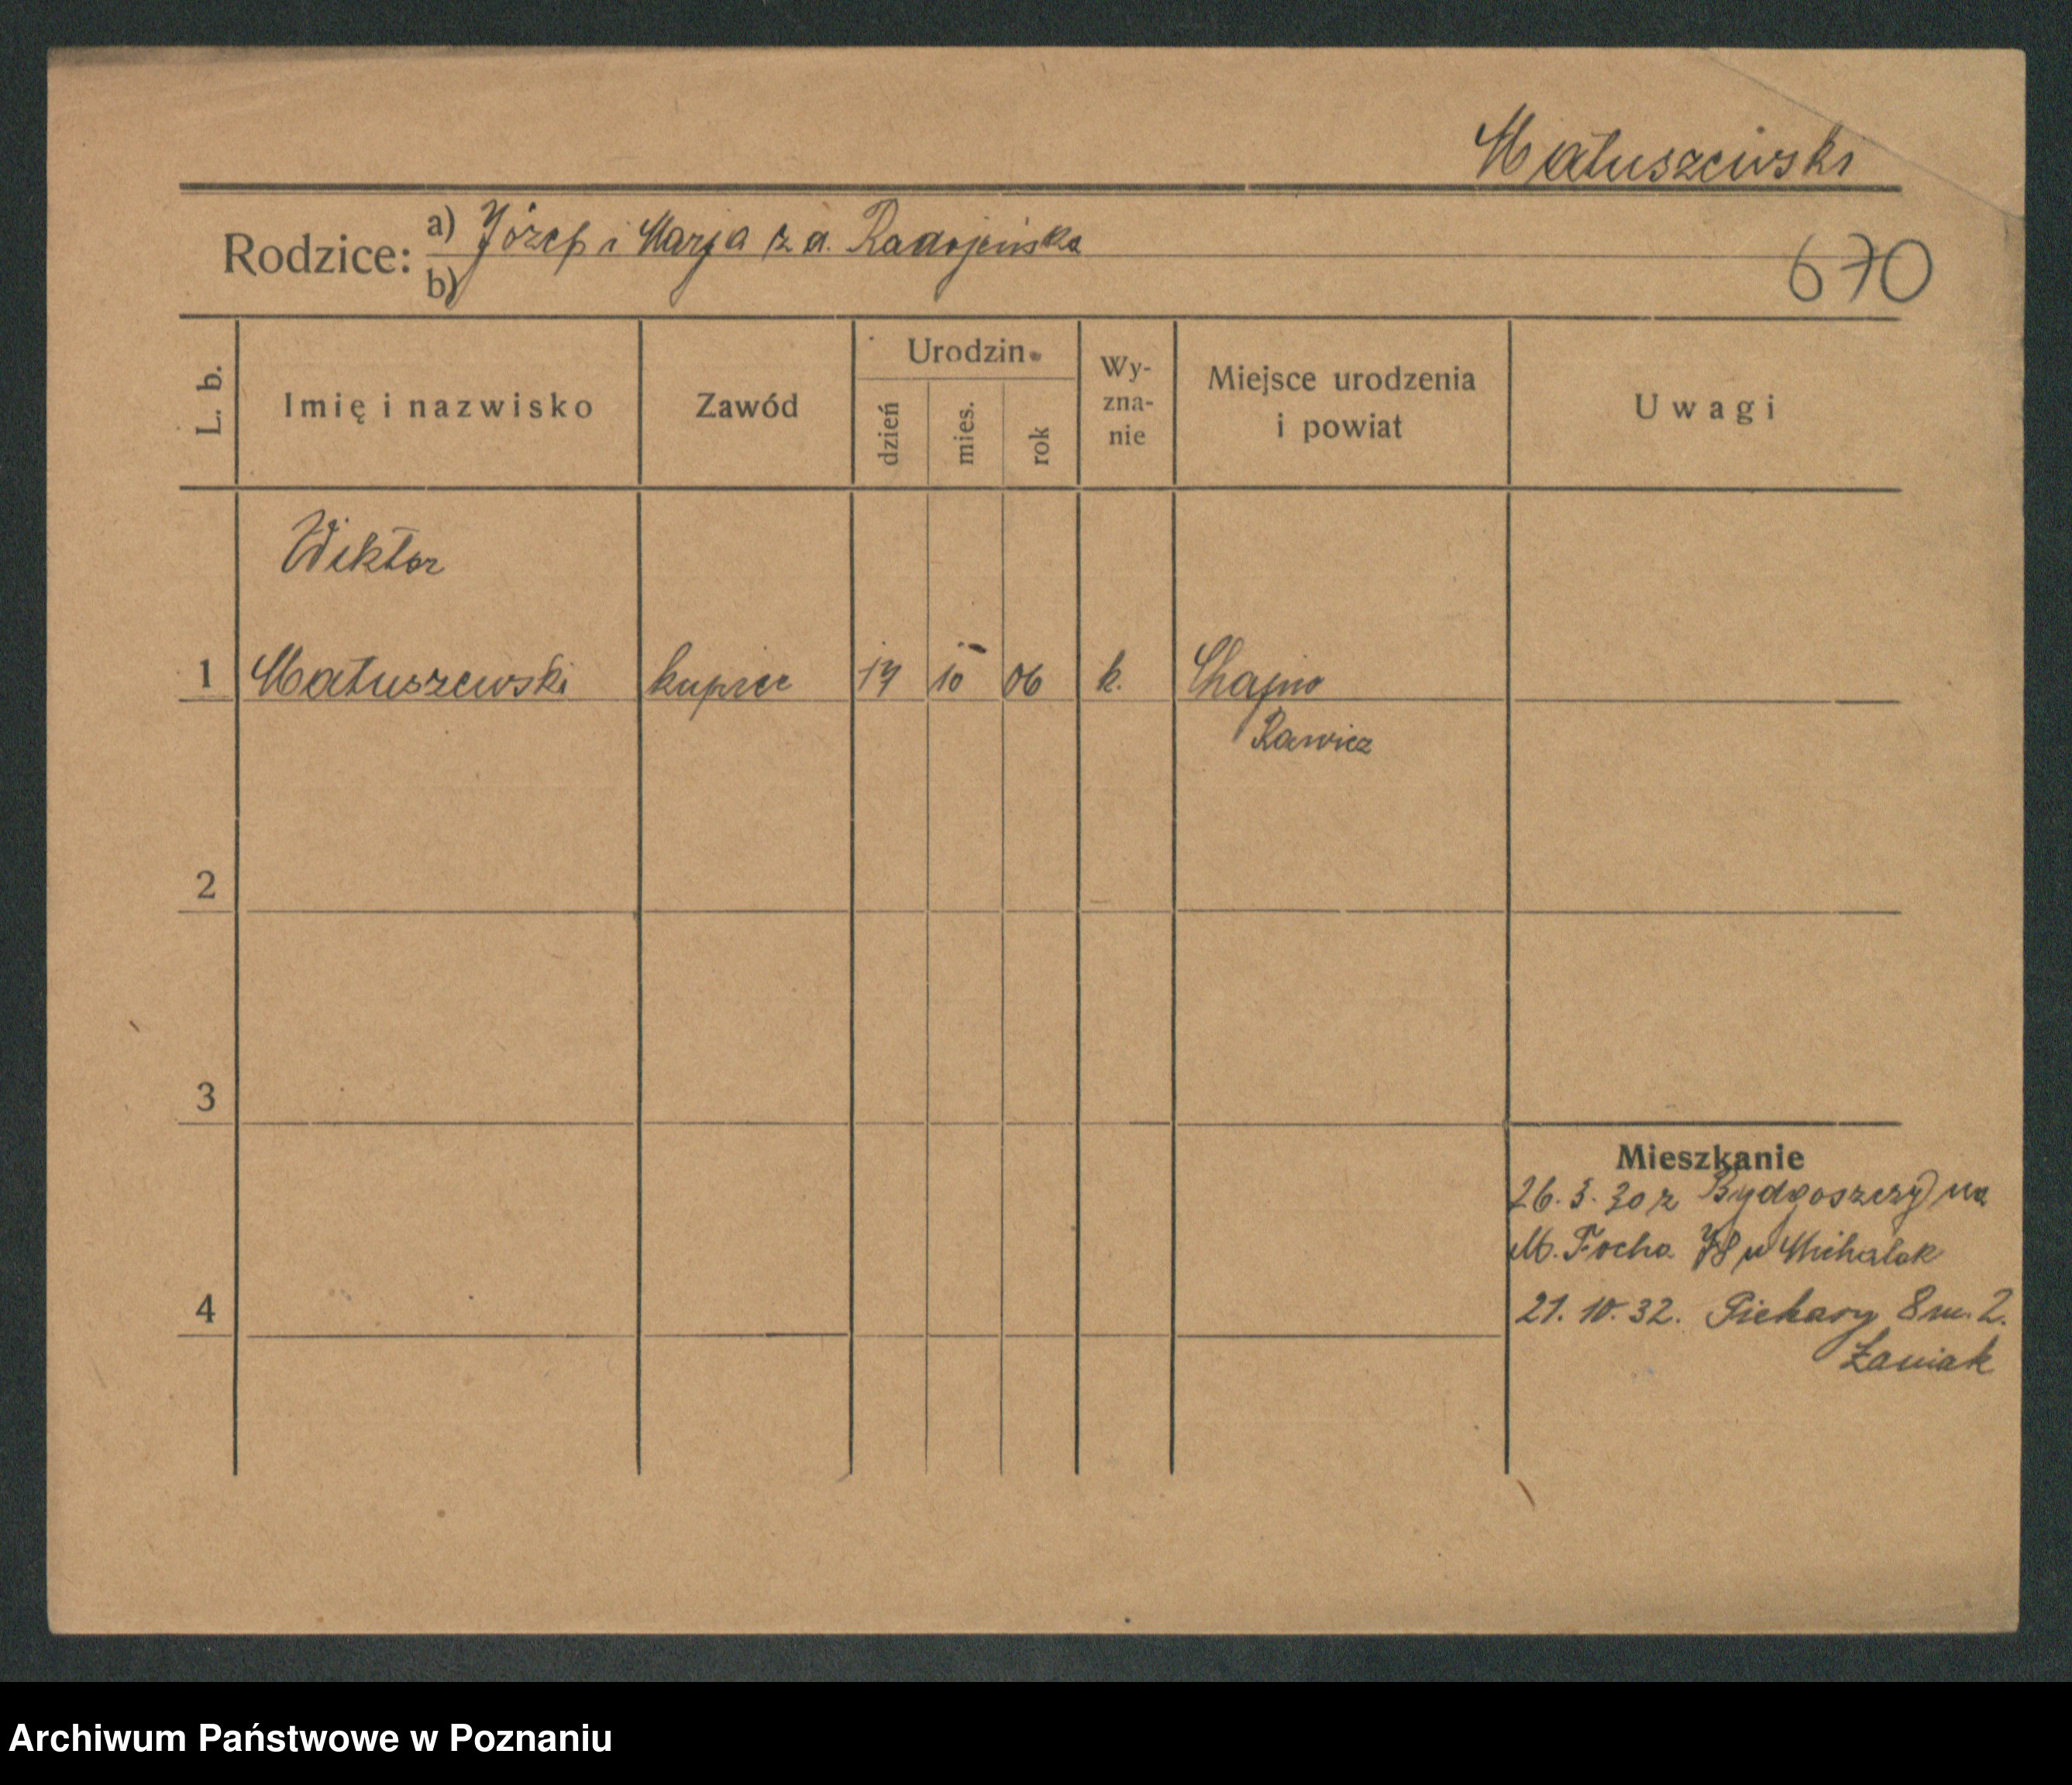 Matuszewski
Rodzice: a) Józef i Marja z d. Radojewska
b)
670
L. b.
Imię i nazwisko
Zawód
Urodzin
dzień
mies.
rok
Wy-
zna-
nie
Miejsce urodzenia
i powiat
Uwagi
Wiktor
1 Matuszewski kupiec 19 10 06 k. Chojno
Rawicz
2
3
Mieszkanie
26. 3. 30 z Bydgoszczy na
M. Focha 78 u Michalak
4
21. 10. 32. Piekary 8 m. 2.
Łaniak
Archiwum Państwowe w Poznaniu